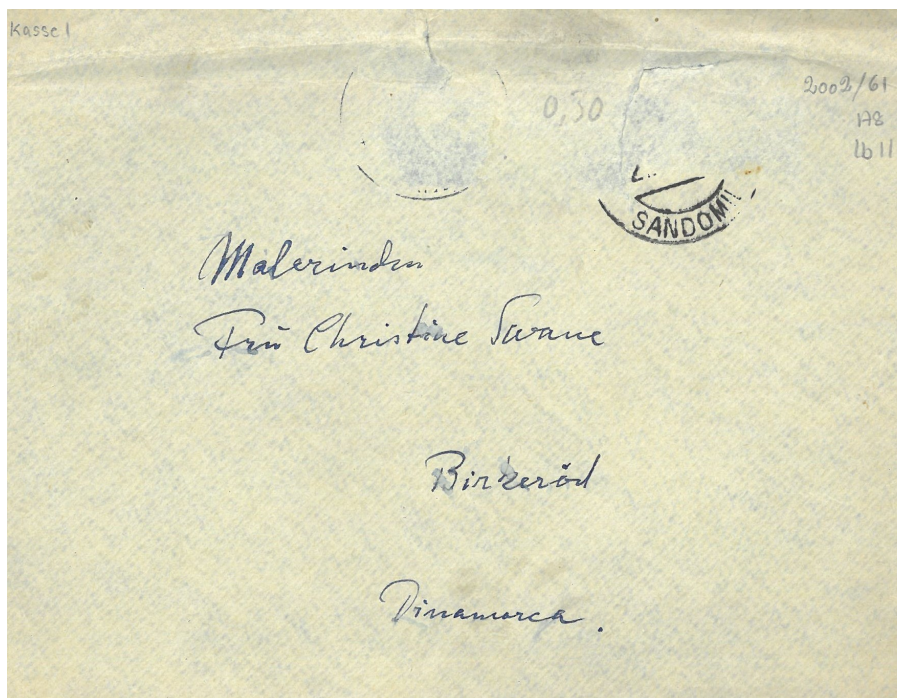 Kasse 1
2002/61
A8
lb 11
0,50
SANDOMI
Malerinden
Frü Christine Swane
Birkeröd
Dinamarca.